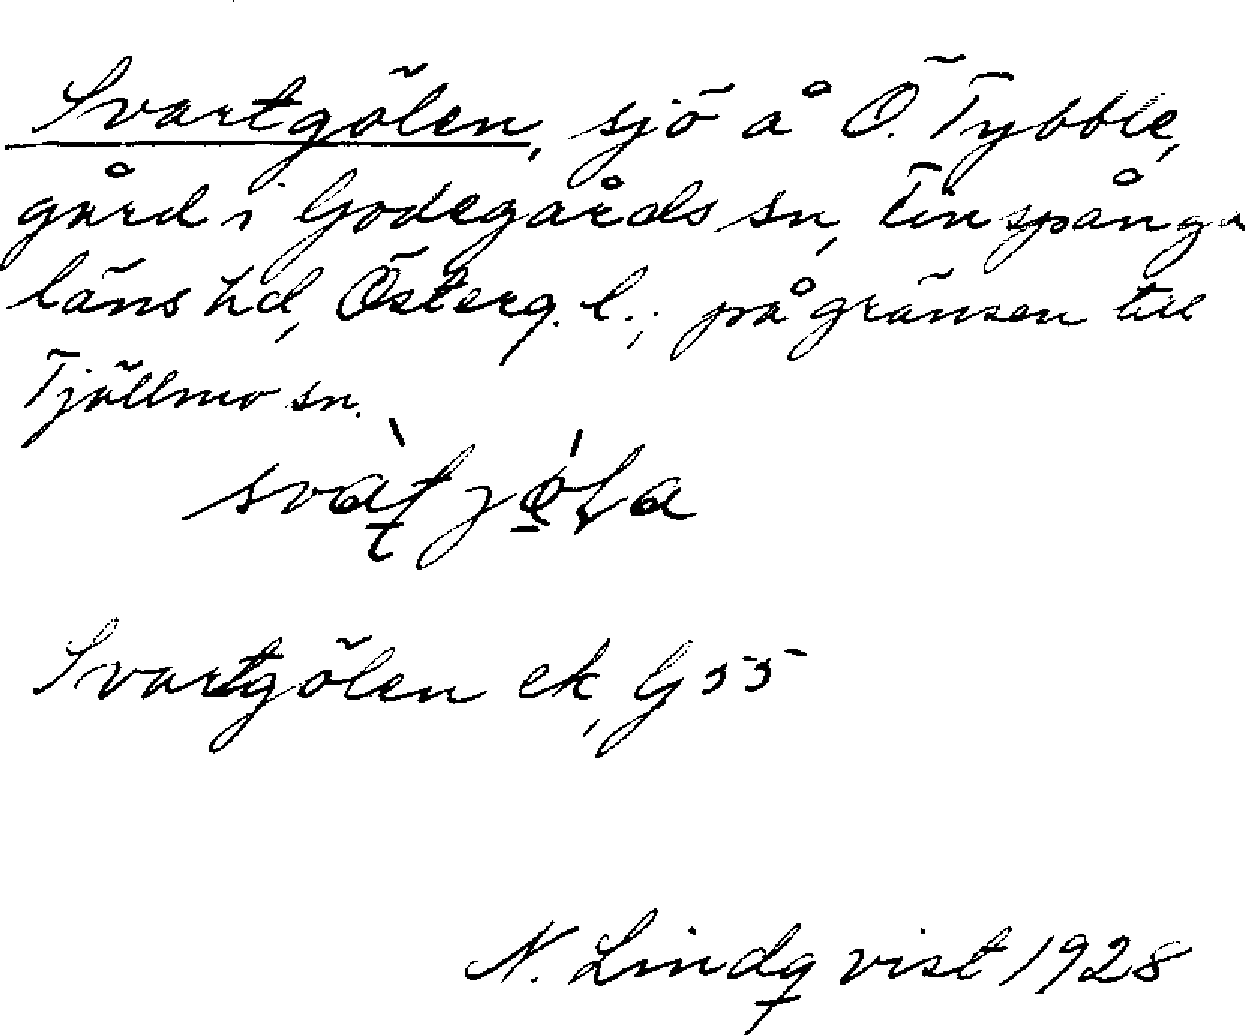 Svartgölen, sjö å Ö. Tybble,
gård i Godegårds sn, Finspånga
läns hd, Österg. l.; på gränsen till
Tjällmo sn.
Svartgölen ek, G 55
N. Lindqvist 1928